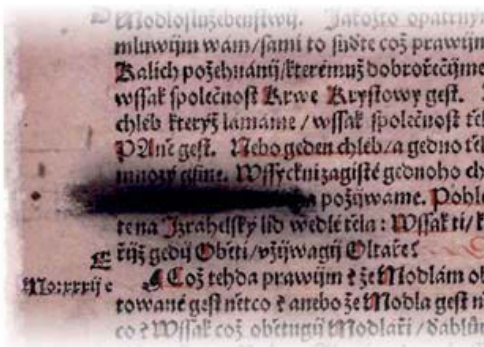 Modloſlužebenſtwij. Jakožto opatrnym
mluwijm wam/ſami to ſuďte což prawijm
Kalich požehnánij/kterémuž dobrořečijme
wſſak ſpolečnoſt Krwe Kryſtowy geſt.
chléb kteryž lamáme / wſſak ſpolečnoſt těl
PAně geſt. Nebo geden chléb/a gedno těl
mnozy gſme. Wſſyckni zagiſté gednoho ch
požijwame. Pohle
te na Jzrahelſky lid wedlé těla: Wſſak ti/k
řijž gedij Oběti/vžijwagij Oltáře?
Mo: xxxij c Což tehda prawijm? že Modlám ob
towané geſt nětco? anebo že Modla geſt n
co? Wſſak což obětugij Modláři/ďáblům